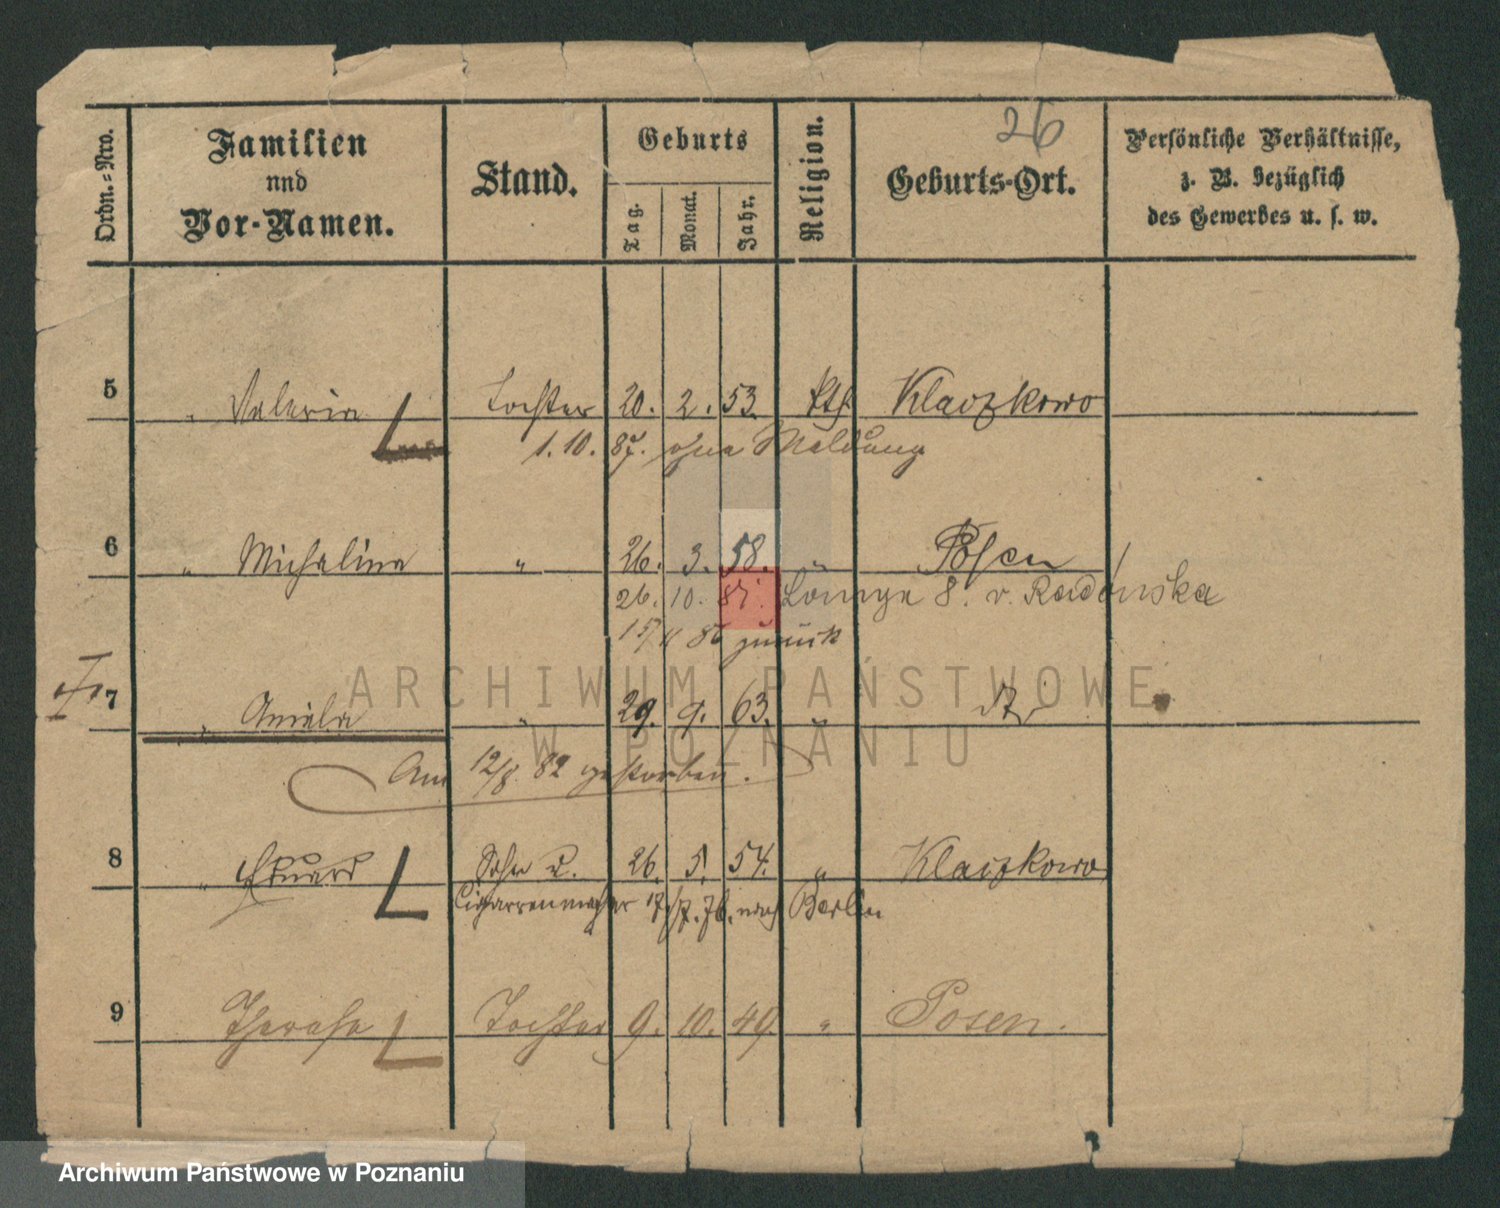 26
Ordn.-Nro.
Familien
und
Vor-Namen.
Stand.
Geburts
Tag.
Monat.
Jahr.
Religion.
Geburts-Ort.
Persönliche Verhältnisse,
z. B. bezüglich
des Gewerbes u. s. w.
5 " Valeria Tochter 20. 2. 53. kth Klaczkowo
1. 10. 87. ohne Meldung
6 " Michalina " 26. 3. 58. " Posen
26. 10. 8 8. v. Radonska
15/11 86 zurück
7 " Aniela " 29. 9. 63. "
Am 12/8. 82 gestorben.
8 " Eduard Sohn u. 26. 5. 54. " Klaczkowo
Cigarrenmacher 17/7. 76. nach Berlin
9 Therese Tochter 9. 10. 49. " Posen.
ARCHIWUM PAŃSTWOWE
W POZNANIU
Archiwum Państwowe w Poznaniu